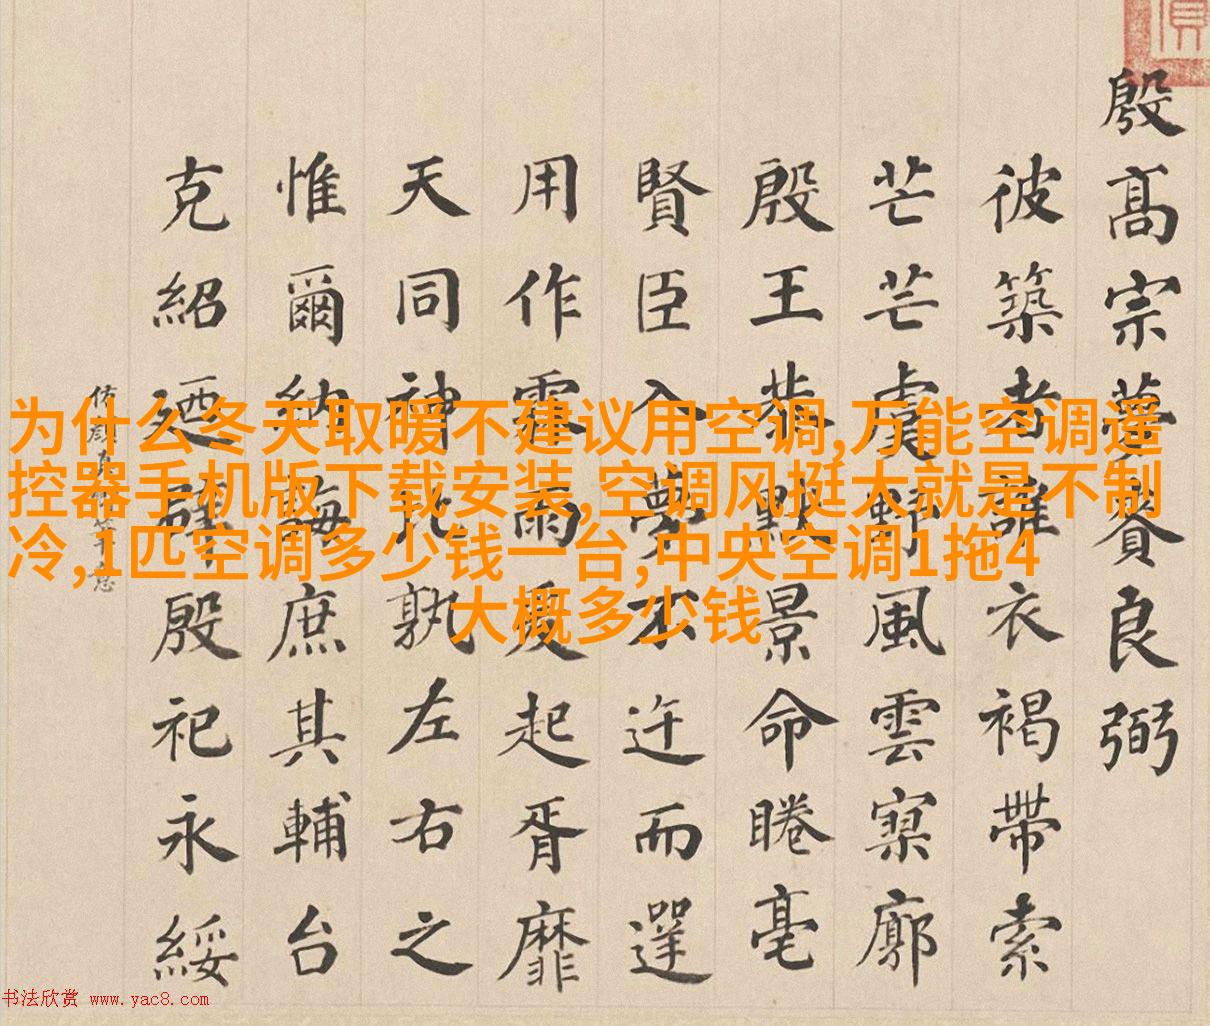 殷髙宗夢賚良弼
彼築者誰衣褐帶索
芒芒虞野風雲寥廓
殷王恭默景命睠亳
賢臣入夢不迕而遻
用作霖雨爰起胥靡
天同神化孰左右之
惟爾納誨庶其輔台
克紹廼辟殷祀永綏
为什么冬天取暖不建议用空调,万能空调遥
控器手机版下载安装,空调风挺大就是不制
冷,1匹空调多少钱一台,中央空调1拖4
大概多少钱
书法欣赏 www.yac8.com